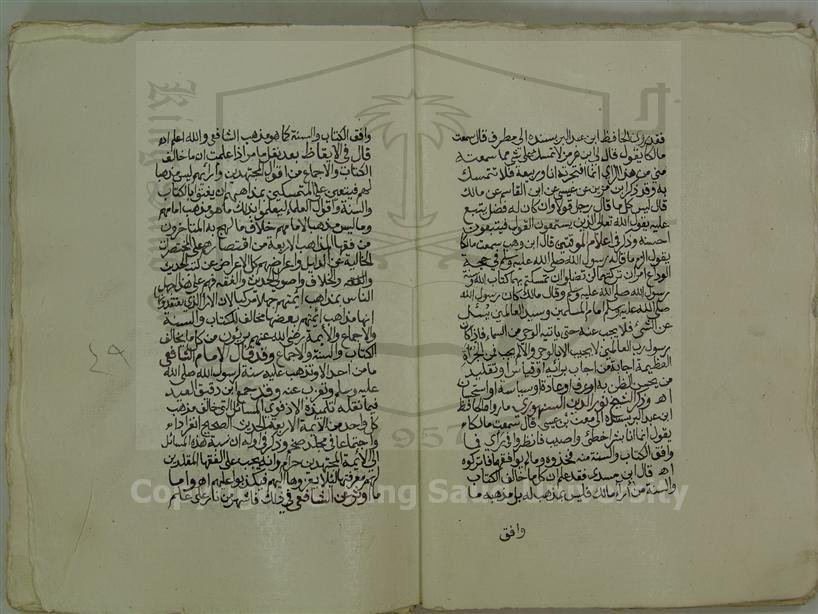 فقد روى الحافظ ابن عبد البر بسنده الى مطرف قال سمعت
مالكا يقول قال لي ابن هرمز لا تمسك على شئ مما سمعته
مني من هذا الراي انما افتجرته انا وربيعة فلا تتمسك
به وقد ذكر ابن مزين عن عيسى عن ابن القاسم عن مالك
قال ليس كل ما قال رجل قولا وان كان له فضل يتبع
عليه يقول الله تعالى الذين يستمعون القول فيتبعون
احسنه وذكر في اعلام الموقعين قال ابن وهب سمعت مالكا
يقول الزم ما قاله رسول الله صلى الله عليه وسلم في حجة
الوداع امران تركتهما لن تضلوا ان تمسكتم بهما كتاب الله و
رسول الله صلى الله عليه وسلم وقال مالك كان رسول الله
صلى الله عليه وسلم امام المسلمين وسيد العالمين يسئل
عن الشئ فلا يجيب عنه حتى ياتيه الوحي من السماء فاذا كان
رسول رب العالمين لا يجيب الا بالوحي والا لم يجب فمن الجراة
العظيمة اجابة من اجاب برائه او قياس او تقليد
من يحسن الظن به او عرف او عادة او سياسة او استحسان
اه وذكر الشيخ نور الدين السنهوري مما رواه الحافظ
ابن عبد البر بسنده الى معن بن عيسى قال سمعت مالكا
يقول انما انا بشر اخطئ واصيب فانظروا في راي ف
وافق الكتاب والسنة منه فخذوه وما لم يوافقهما فاتركوه
اه قال ابن مسدي فقد علم ان كل ما خالف الكتاب
والسنة من اراء مالك فليس بمذهب له بل مذهبه ما
وافق
وافق الكتاب والسنة كما هو مذهب الشافعي والله اعلم اه
قال في الايقاظ بعد نقل ما مر اذا علمت ان ما خالف
الكتاب والاجماع من اقوال المجتهدين وارائهم ليس مذهبا
لهم فيتعين على المتمسكين بمذاهبهم ان يعتنوا بالكتاب
والسنة واقوال العلماء ليعلموا بذلك ما هو مذهب امامهم
وما ليس مذهب الامامهم خلاف ما لهج به المتاخرون
من فقهاء المذاهب الاربعة من اقتصارهم على المختصرات
الخالية عن الدليل واعراضهم كل الاعراض عن كتب الحديث
والفقه والخلاف واصول الحديث والفقه فهم
الناس بمذاهب ائمتهم جهلا مركبا لان الاراء الذي يعتقدون
انها مذاهب ائمتهم بعضها مخالف للكتاب والسنة
والاجماع والائمة رضي الله عنهم بريئون من كل ما يخالف
الكتاب والسنة والاجماع وقد قال الامام الشافعي
ما من احد الا وتذهب عليه سنة لرسول الله صلى الله
عليه وسلم وتعزب عنه وقد جمع ابن دقيق العيد
فيما نقله تلميذه الادفوي المسائل التي خالف مذهب
كل واحد من الائمة الاربعة الحديث الصحيح انفرادا و
واجتماعا في مجلد ضخم وذكر في اوله ان نسبة هذه المسائل
الى الائمة المجتهدين حرام وانه يجب على الفقهاء المقلدين
لهم معرفتها لئلا يعزوها اليهم فيكذبوا عليهم اه واما
ما ورد عن الشافعي في ذلك فاشهر من نار على علم
Copyright © King Saud University
1957